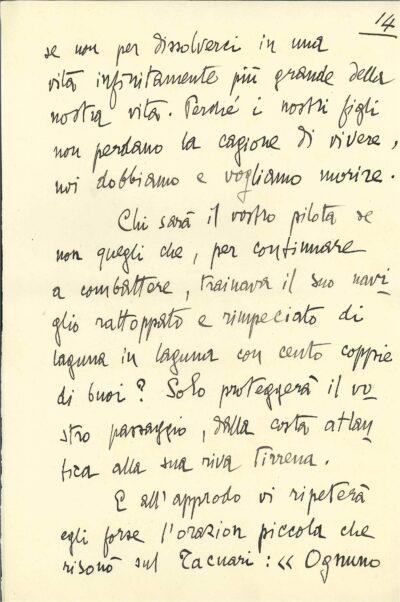 14
se non per dissolverci in una
vita infinitamente più grande della
nostra vita. Perché i nostri figli
non perdano la cagione di vivere,
noi dobbiamo e vogliamo morire.
Chi sarà il vostro pilota se
non quegli che, per continuare
a combattere, trainava il suo navi
glio rattoppato e rimpeciato di
laguna in laguna con cento coppie
di buoi? Solo proteggerà il vo
stro passaggio, dalla costa atlan
tica alla sua riva Tirrena.
E all'approdo vi ripeterà
egli forse l'orazion piccola che
risonò sul Tacuari: « Ognuno